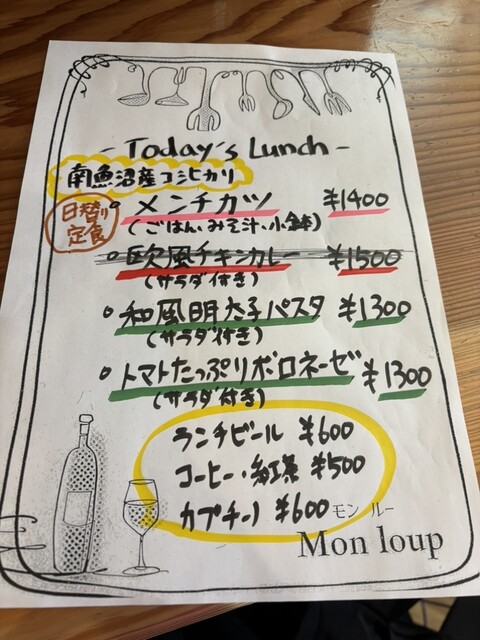 - Today's Lunch -
南魚沼産コシヒカリ
日替り
定食
。メンチカツ ¥1400
(ごはん、みそ汁、小鉢)
。欧風チキンカレー ¥1500
(サラダ付き)
。和風明太子パスタ ¥1300
(サラダ付き)
。トマトたっぷりボロネーゼ ¥1300
(サラダ付き)
ランチビール ¥600
コーヒー・紅茶 ¥500
カプチーノ ¥600
モン ルー
Mon loup